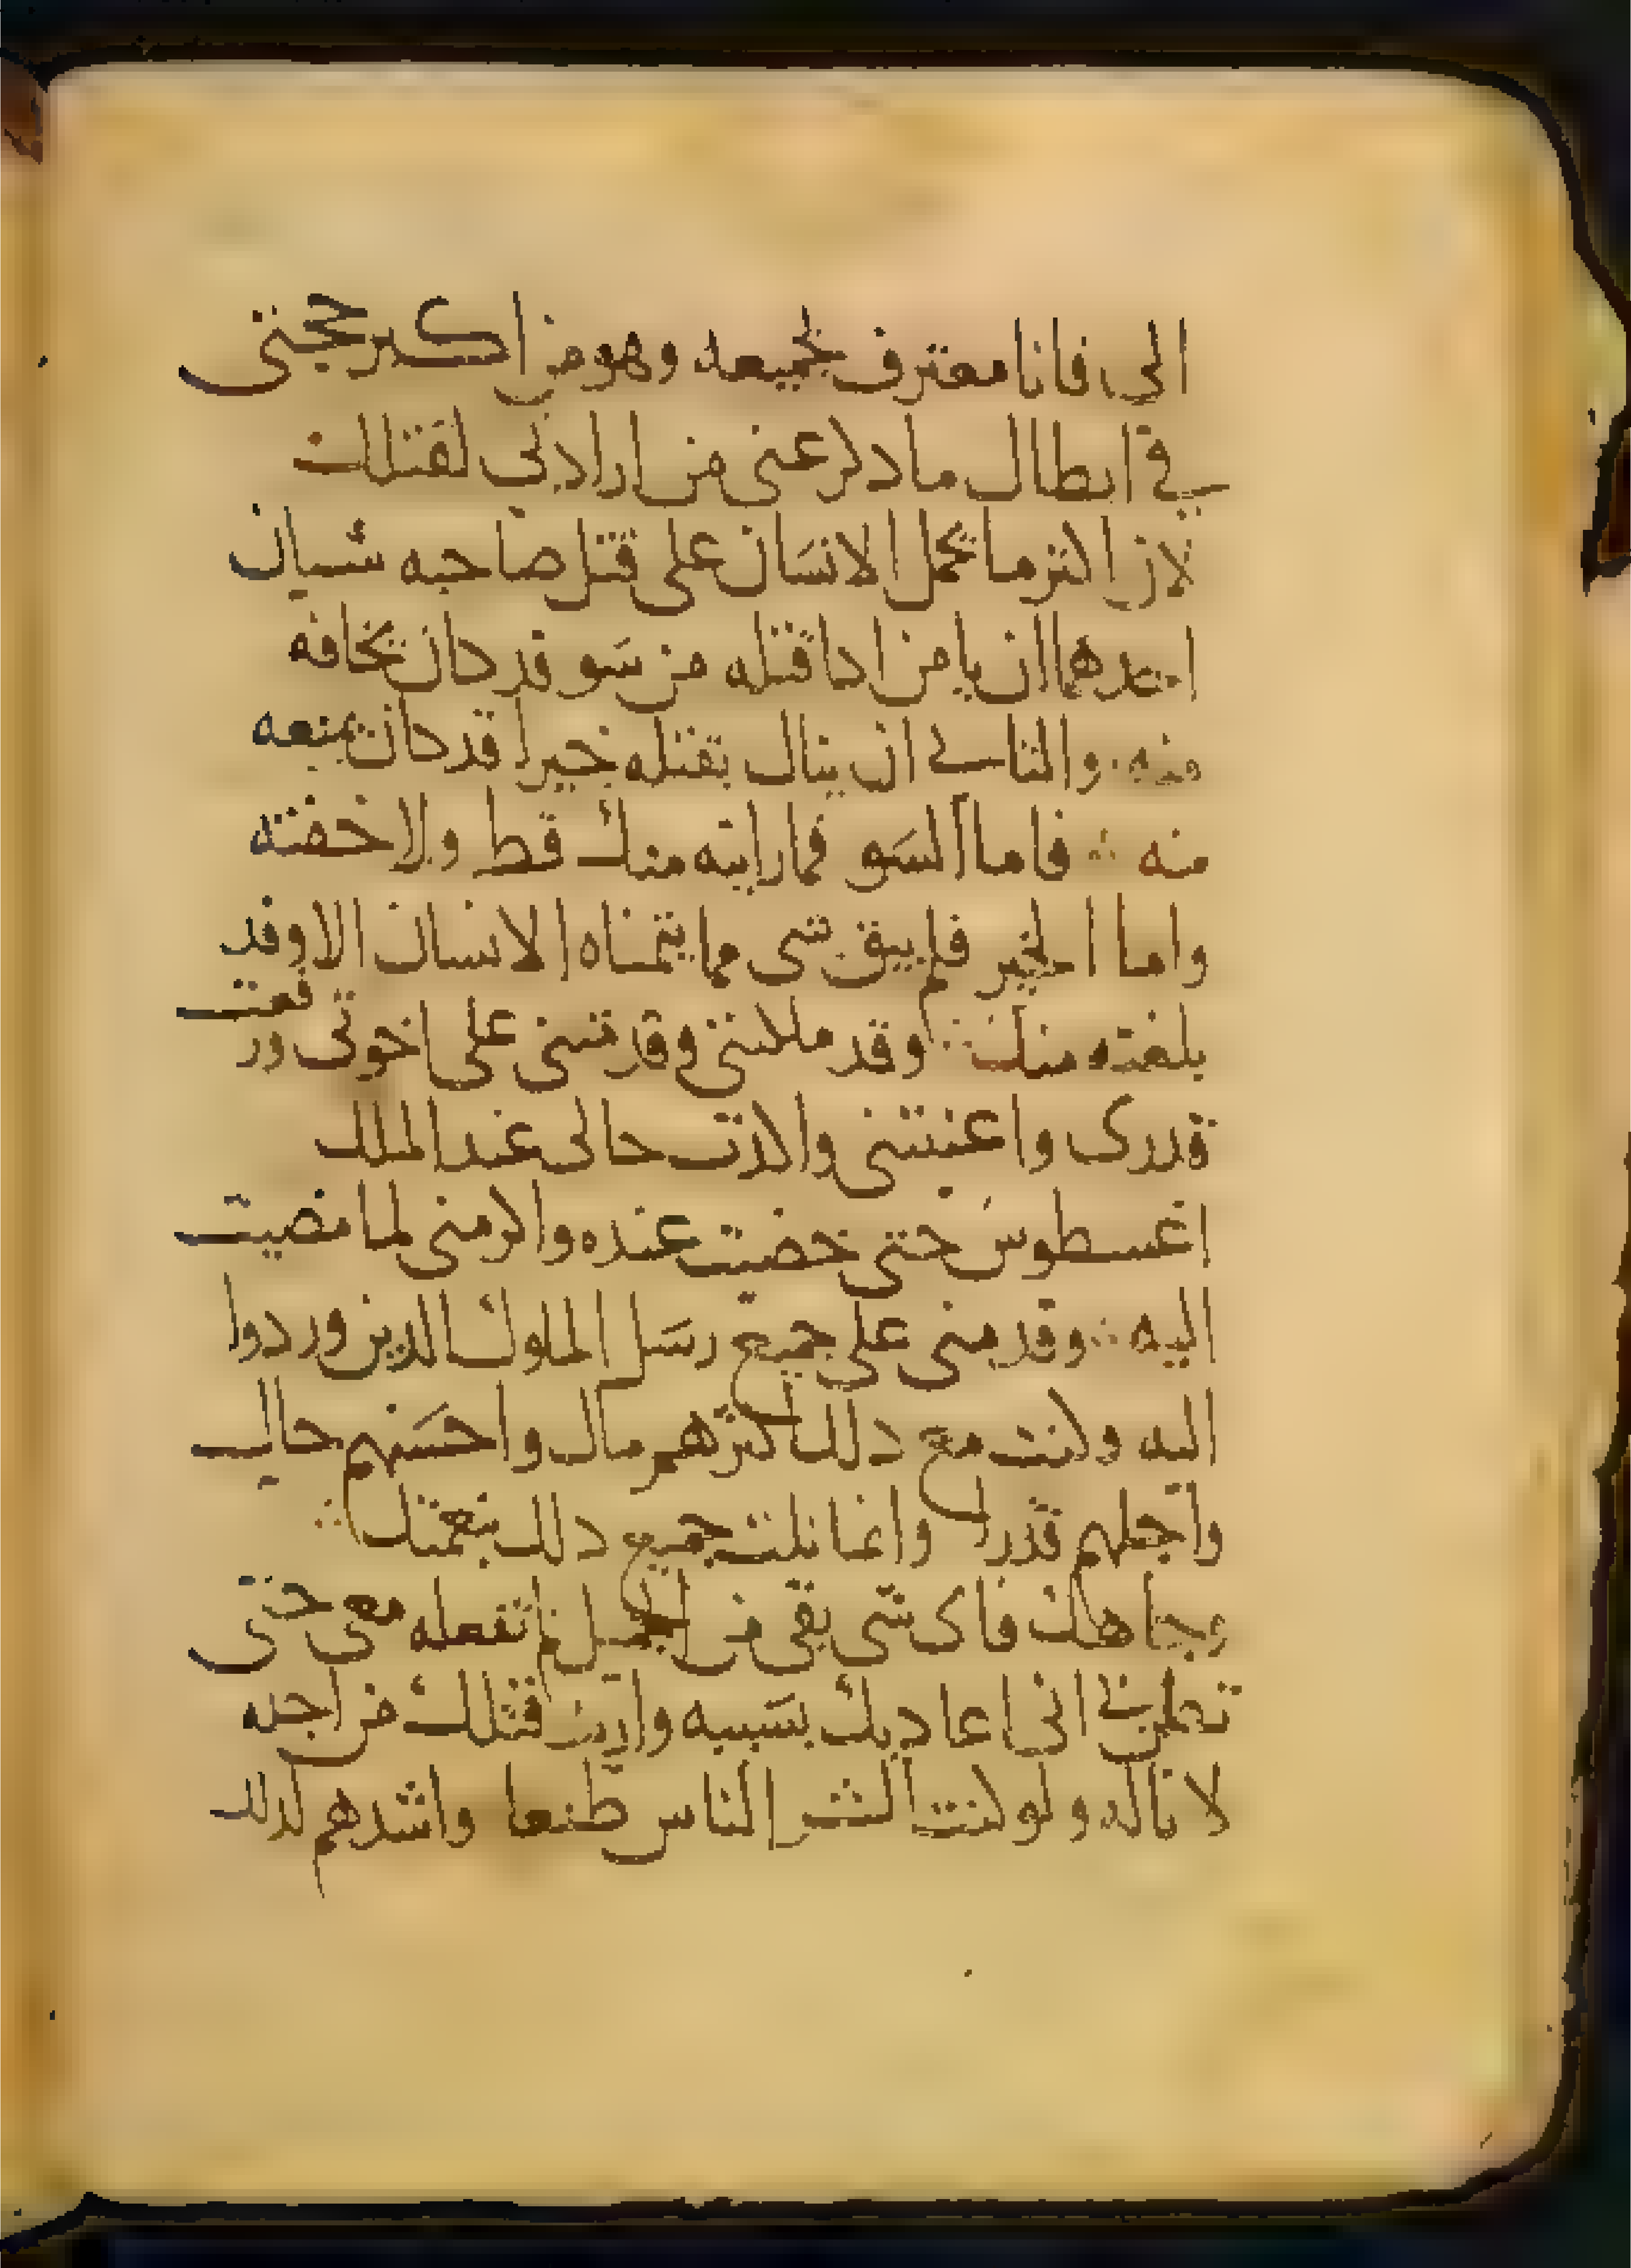 الى فانا معترف بجميعه وهو من اكبر حجتى
في ابطال ما دكر عنى من ارادتي لقتلك
لان اكثر ما يحمل الانسان على قتل صاحبه شيان
احدهما ان يامن ادا قتله من سو قد كان يخافه
منه والثاني ان ينال بقتله خيرا قد كان يمنعه
منه فاما السو فما رايته منك قط ولا خفته
واما الخير فلم يبق شى مما يتمناه الانسان الا وقد
بلغته منك وقد ملكتنى وقدمتنى على اخوتى ورفعت
قدرى واغنيتنى واكدت حالى عند الملك
اغسطوس حتى حضيت عنده واكرمنى لما مضيت
اليه وقدمنى على جميع رسل الملوك الدين وردوا
اليه وكنت مع دلك اكثرهم مال واحسنهم حال
واجلهم قدرا وانما نلت جميع دلك بنعمتك
وجاهك فاى شى بقى من الجميل لم تفعله معى حتى
تظن بي انى اعاديك بسببه واريد قتلك من اجله
لاناله ولو كنت اكثر الناس طمعا واشدهم لدلك